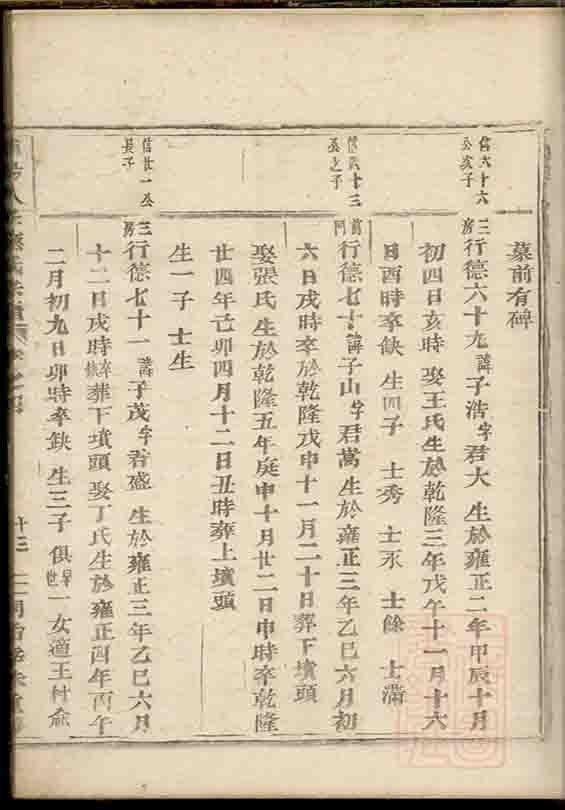 墓前有碑
信六十六
公亥子
三房行德六十九諱子浩字君大 生於雍正二年甲辰十月
初四日亥時 娶王氏生於乾隆三年戊午十一月十六
日酉時卒缺 生四子 士秀 士永 士餘 士滿
信六十三
公之子
前門行德七十諱子山字君萬生於雍正三年乙巳六月初
六日戌時卒於乾隆戊申十一月二十日葬下墳頭
娶張氏生於乾隆五年庚申十月廿二日申時卒乾隆
廿四年己卯四月十二日丑時葬上墳頭
生一子 士生
信廿一公
長子
三房行德七十一諱子茂字君盛 生於雍正三年乙巳六月
十二日戌時卒缺葬下墳頭 娶丁氏生於雍正四年丙午
二月初九日卯時卒缺 生三子 俱早世一女適王村俞
十三